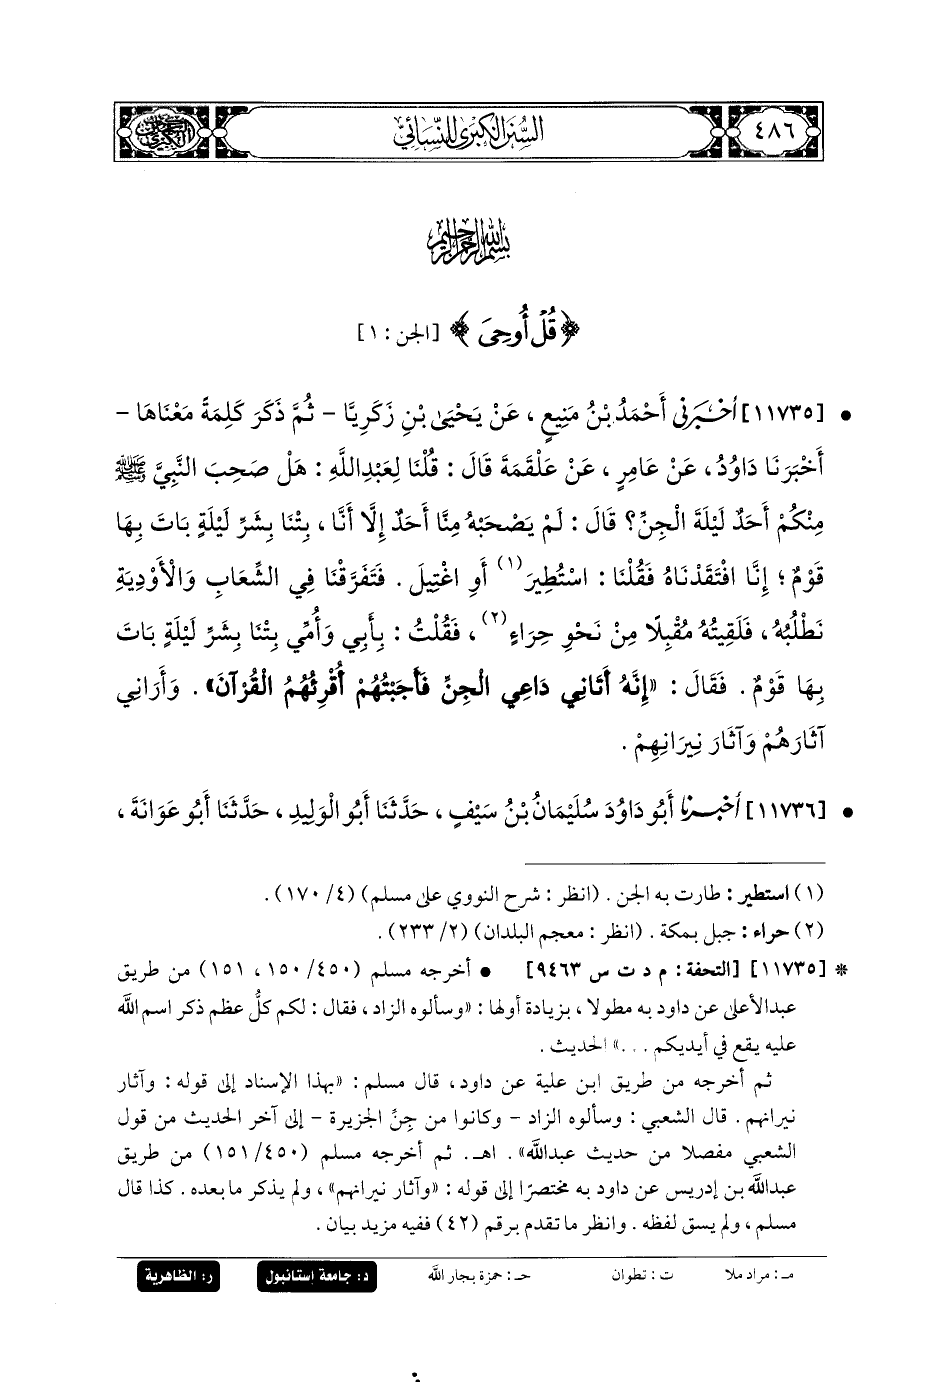 السنن الكبرى للنسائي
٤٨٦
بسم الله الرحمن الرحيم
﴿ قُلْ أُوحِىَ ﴾ [الجن : ١]
• [١١٧٣٥] أَخْبَرَنِي أَحْمَدُ بْنُ مَنِيعٍ ، عَنْ يَحْيَى بْنِ زَكَرِيَّا - ثُمَّ ذَكَرَ كَلِمَةً مَعْنَاهَا -
أَخْبَرَنَا دَاوُدُ ، عَنْ عَامِرٍ ، عَنْ عَلْقَمَةَ قَالَ : قُلْنَا لِعَبْدِاللَّهِ : هَلْ صَحِبَ النَّبِيَّ ﷺ
مِنْكُمْ أَحَدٌ لَيْلَةَ الْجِنِّ؟ قَالَ : لَمْ يَصْحَبْهُ مِنَّا أَحَدٌ إِلَّا أَنَّا ، بِتْنَا بِشَرِّ لَيْلَةٍ بَاتَ بِهَا
قَوْمٌ ؛ إِنَّا افْتَقَدْنَاهُ فَقُلْنَا : اسْتُطِيرَ(١) أَوِ اغْتِيلَ . فَتَفَرَّقْنَا فِي الشِّعَابِ وَالْأَوْدِيَةِ
نَطْلُبُهُ ، فَلَقِيتُهُ مُقْبِلًا مِنْ نَحْوِ حِرَاءٍ(٢) ، فَقُلْتُ : بِأَبِي وَأُمِّي بِتْنَا بِشَرِّ لَيْلَةٍ بَاتَ
بِهَا قَوْمٌ . فَقَالَ : «إِنَّهُ أَتَانِي دَاعِي الْجِنِّ فَأَجَبْتُهُمْ أُقْرِئُهُمُ الْقُرْآنَ» . وَأَرَانِي
آثَارَهُمْ وَآثَارَ نِيرَانِهِمْ .
• [١١٧٣٦] أَخْبَرَنَا أَبُو دَاوُدَ سُلَيْمَانُ بْنُ سَيْفٍ ، حَدَّثَنَا أَبُو الْوَلِيدِ ، حَدَّثَنَا أَبُو عَوَانَةَ ،
(١) استطير : طارت به الجن . (انظر : شرح النووي على مسلم) (٤/ ١٧٠) .
(٢) حراء : جبل بمكة . (انظر : معجم البلدان) (٢/ ٢٣٣) .
* [١١٧٣٥] [التحفة : م د ت س ٩٤٦٣] • أخرجه مسلم (٤٥٠/ ١٥٠ ، ١٥١) من طريق
عبدالأعلى عن داود به مطولا ، بزيادة أولها : «وسألوه الزاد ، فقال : لكم كلُّ عظم ذكر اسم الله
عليه يقع في أيديكم . . .» الحديث .
ثم أخرجه من طريق ابن علية عن داود ، قال مسلم : «بهذا الإسناد إلى قوله : وآثار
نيرانهم . قال الشعبي : وسألوه الزاد - وكانوا من جِنِّ الجزيرة - إلى آخر الحديث من قول
الشعبي مفصلا من حديث عبدالله» . اهـ. ثم أخرجه مسلم (٤٥٠/ ١٥١) من طريق
عبدالله بن إدريس عن داود به مختصرًا إلى قوله : «وآثار نيرانهم» ، ولم يذكر ما بعده . كذا قال
مسلم ، ولم يسق لفظه . وانظر ما تقدم برقم (٤٢) ففيه مزيد بيان .
مـ : مراد ملا ت : تطوان حـ : حمزة بجار الله د : جامعة إستانبول ر : الظاهرية